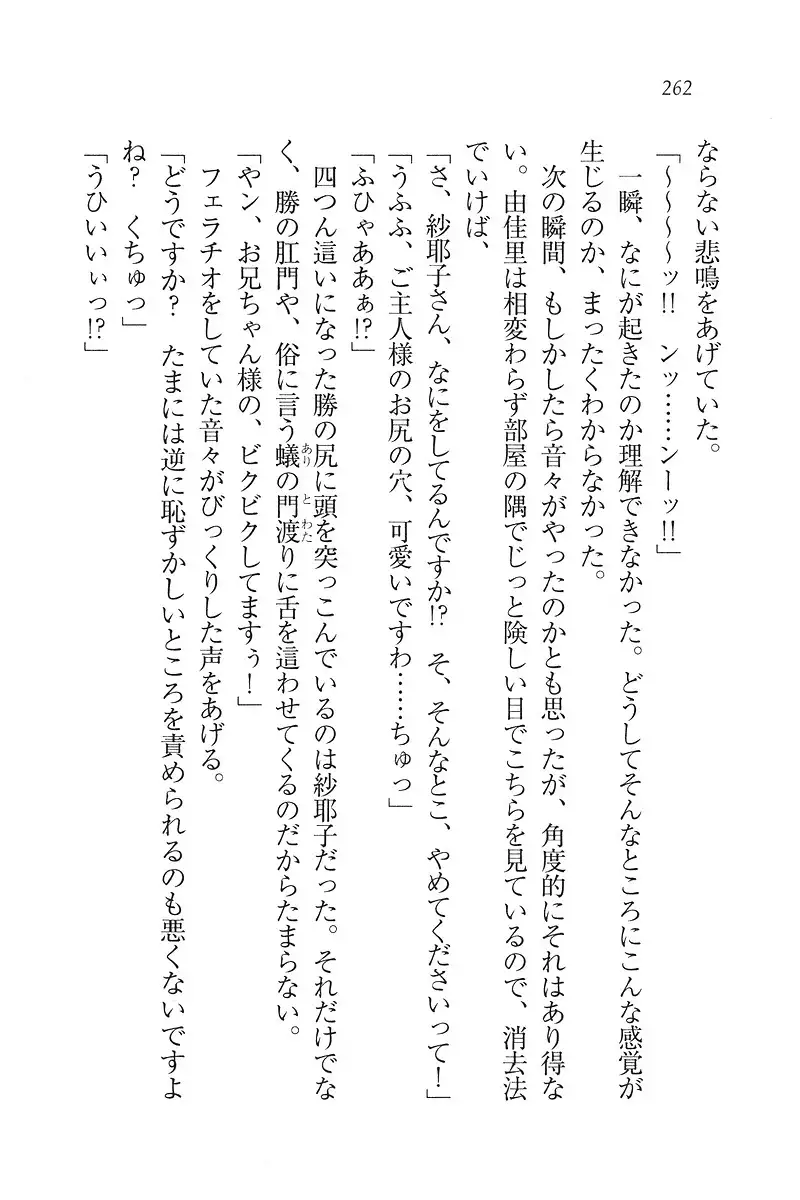 262
ならない悲鳴をあげていた。
「～～～～ッ!!　ンッ……ンーッ!!」
　一瞬、なにが起きたのか理解できなかった。どうしてそんなところにこんな感覚が
生じるのか、まったくわからなかった。
　次の瞬間、もしかしたら音々がやったのかとも思ったが、角度的にそれはあり得な
い。由佳里は相変わらず部屋の隅でじっと険しい目でこちらを見ているので、消去法
でいけば、
「さ、紗耶子さん、なにをしてるんですか!?　そ、そんなとこ、やめてくださいって！」
「うふふ、ご主人様のお尻の穴、可愛いですわ……ちゅっ」
「ふひゃああぁ!?」
　四つん這いになった勝の尻に頭を突っこんでいるのは紗耶子だった。それだけでな
く、勝の肛門や、俗に言う蟻の門渡りに舌を這わせてくるのだからたまらない。
「やン、お兄ちゃん様の、ビクビクしてますぅ！」
　フェラチオをしていた音々がびっくりした声をあげる。
「どうですか？　たまには逆に恥ずかしいところを責められるのも悪くないですよ
ね？　くちゅっ」
「うひいいぃっ!?」